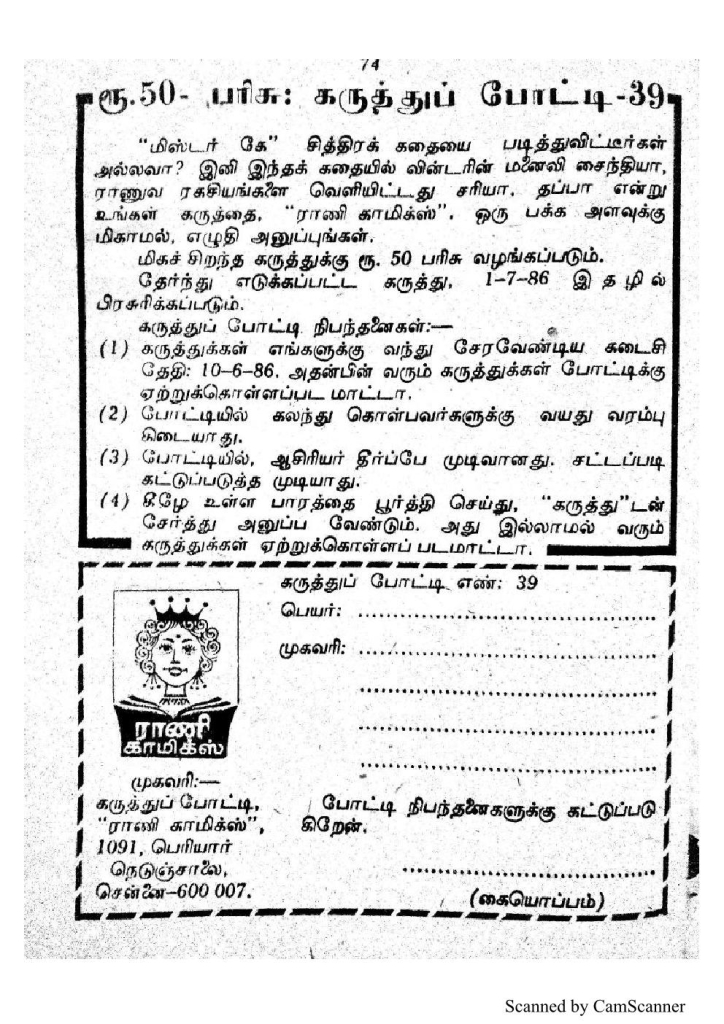 74
ரூ.50- பரிசு: கருத்துப் போட்டி-39
"மிஸ்டர் கே" சித்திரக் கதையை படித்துவிட்டீர்கள்
அல்லவா? இனி இந்தக் கதையில் வின்டரின் மனைவி சைந்தியா,
ராணுவ ரகசியங்களை வெளியிட்டது சரியா, தப்பா என்று
உங்கள் கருத்தை, "ராணி காமிக்ஸ்". ஒரு பக்க அளவுக்கு
மிகாமல், எழுதி அனுப்புங்கள்.
மிகச் சிறந்த கருத்துக்கு ரூ. 50 பரிசு வழங்கப்படும்.
தேர்ந்து எடுக்கப்பட்ட கருத்து, 1-7-86 இதழில்
பிரசுரிக்கப்படும்.
கருத்துப் போட்டி நிபந்தனைகள்:—
(1) கருத்துக்கள் எங்களுக்கு வந்து சேரவேண்டிய கடைசி
தேதி: 10-6-86. அதன்பின் வரும் கருத்துக்கள் போட்டிக்கு
ஏற்றுக்கொள்ளப்பட மாட்டா.
(2) போட்டியில் கலந்து கொள்பவர்களுக்கு வயது வரம்பு
கிடையாது.
(3) போட்டியில், ஆசிரியர் தீர்ப்பே முடிவானது. சட்டப்படி
கட்டுப்படுத்த முடியாது.
(4) கீழே உள்ள பாரத்தை பூர்த்தி செய்து, "கருத்து"டன்
சேர்த்து அனுப்ப வேண்டும். அது இல்லாமல் வரும்
கருத்துக்கள் ஏற்றுக்கொள்ளப் படமாட்டா.
கருத்துப் போட்டி எண்: 39
பெயர்: ........................................
முகவரி: ........................................
........................................
........................................
........................................
ராணி
காமிக்ஸ்
முகவரி:—
கருத்துப் போட்டி,
"ராணி காமிக்ஸ்",
1091, பெரியார்
நெடுஞ்சாலை,
சென்னை-600 007.
போட்டி நிபந்தனைகளுக்கு கட்டுப்படு
கிறேன்.
........................................
(கையொப்பம்)
Scanned by CamScanner